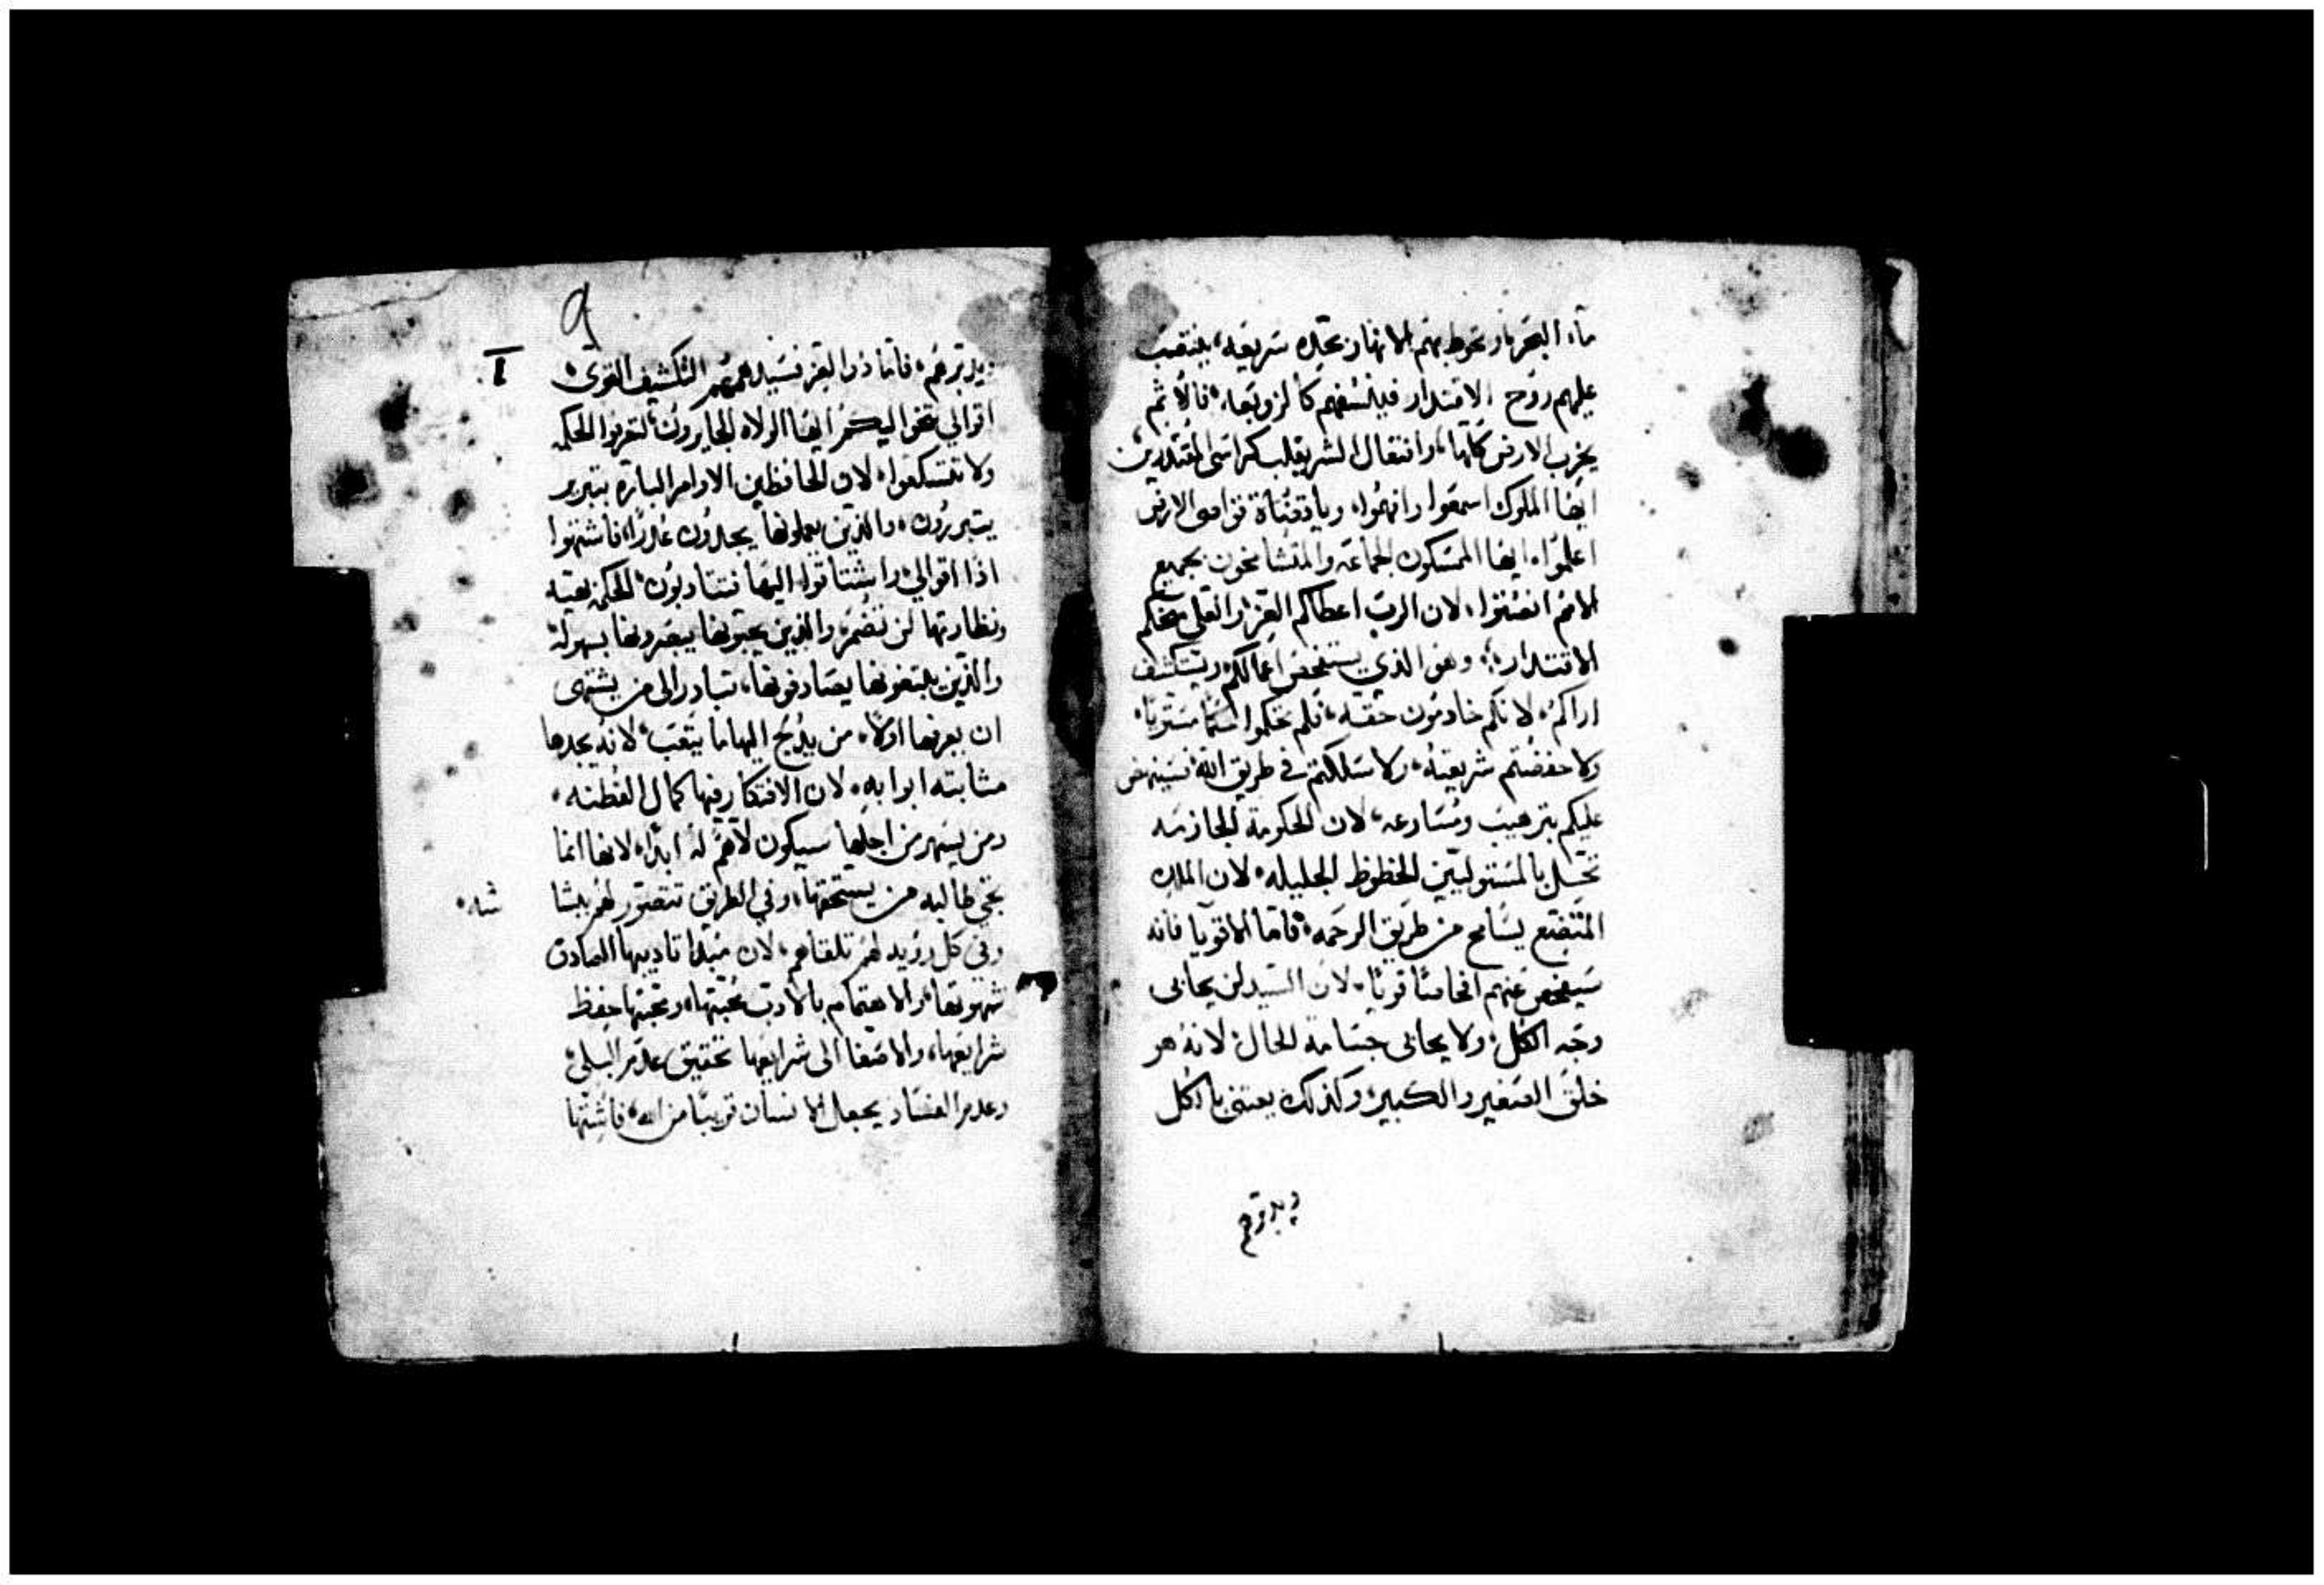 ماء البحر، وتحوط بهم الانهار بحده سريعه، ينتصب
عليهم روح الاقتدار فينسفهم كالزوبعه، فالاثم
يخرب الارض كلها، وافتعال الشر يقلب كراسي المقتدرين
ايها الملوك اسمعوا وافهموا، ويا قضاة نواحي الارض
اعلموا، ايها المتمسكون الجماعه والمتشامخون بجميع
الامم انصتوا، لان الرب اعطاكم العز، والعلي منحكم
الاقتدار، وهو الذي يستفحص اعمالكم، ويستكشف
اراكم، لانكم خادمون حقه، فلم تحكموا حكما مستويا،
ولا حفضتم شريعته، ولا سلكتم في طريق الله، فسينهض
عليكم بترهيب ومسارعه، لان الحكومة الجازمه
تحل بالمستوليين الحظوظ الجليله، لان الملك
المتضع يسامح من طريق الرحمه، فاما الاقويا فانه
سيفحص عنهم افحاصا قويا، لان السيد لن يحابي
وجه الكل، ولا يحابي جسامة الحال، لانه هو
خلق الصغير والكبير، وكذلك يعتني بالكل
ويدبرهم
٩
ويدبرهم، فاما ذوا العز فسيدهمهم التكشيف القوي،
اقوالي نحوا اليكم ايها الولاه الجايرون، لتعرفوا الحكمه
ولا تتسكعوا، لان الحافظين الاوامر الباره ببرر
يتبررون، والذين يعملونها يجدون عذرا، فاشتهوا
اذا اقوالي، واشتاقوا اليها تتادبون، الحكمة بهيه
ونظارتها لن تضمر، والذين يحبونها يبصرونها بسهوله
والذين يبتغونها يصادفونها، تبادر الى من يشتهي
ان يعرفها اولا، من يدلج اليها ما يتعب، لانه يجدها
مثابته ابوابه، لان الافتكار فيها كمال الفطنه،
ومن يسهر من اجلها سيكون لا هم له ابدا، لانها انما
تجي طالبه من يستحقها، وفي الطريق تتصور لهم ببشا
شه،
وفي كل رويه لهم تلقاهم، لان مبدا تاديبها الصادق
شهوتها، والاهتمام بالادب محبتها، ومحبتها حفظ
شرايعها، والاصغا الى شرايعها تحقيق عدم البلى،
وعدم الفساد يجعل الانسان قريبا من الله، فاشتها